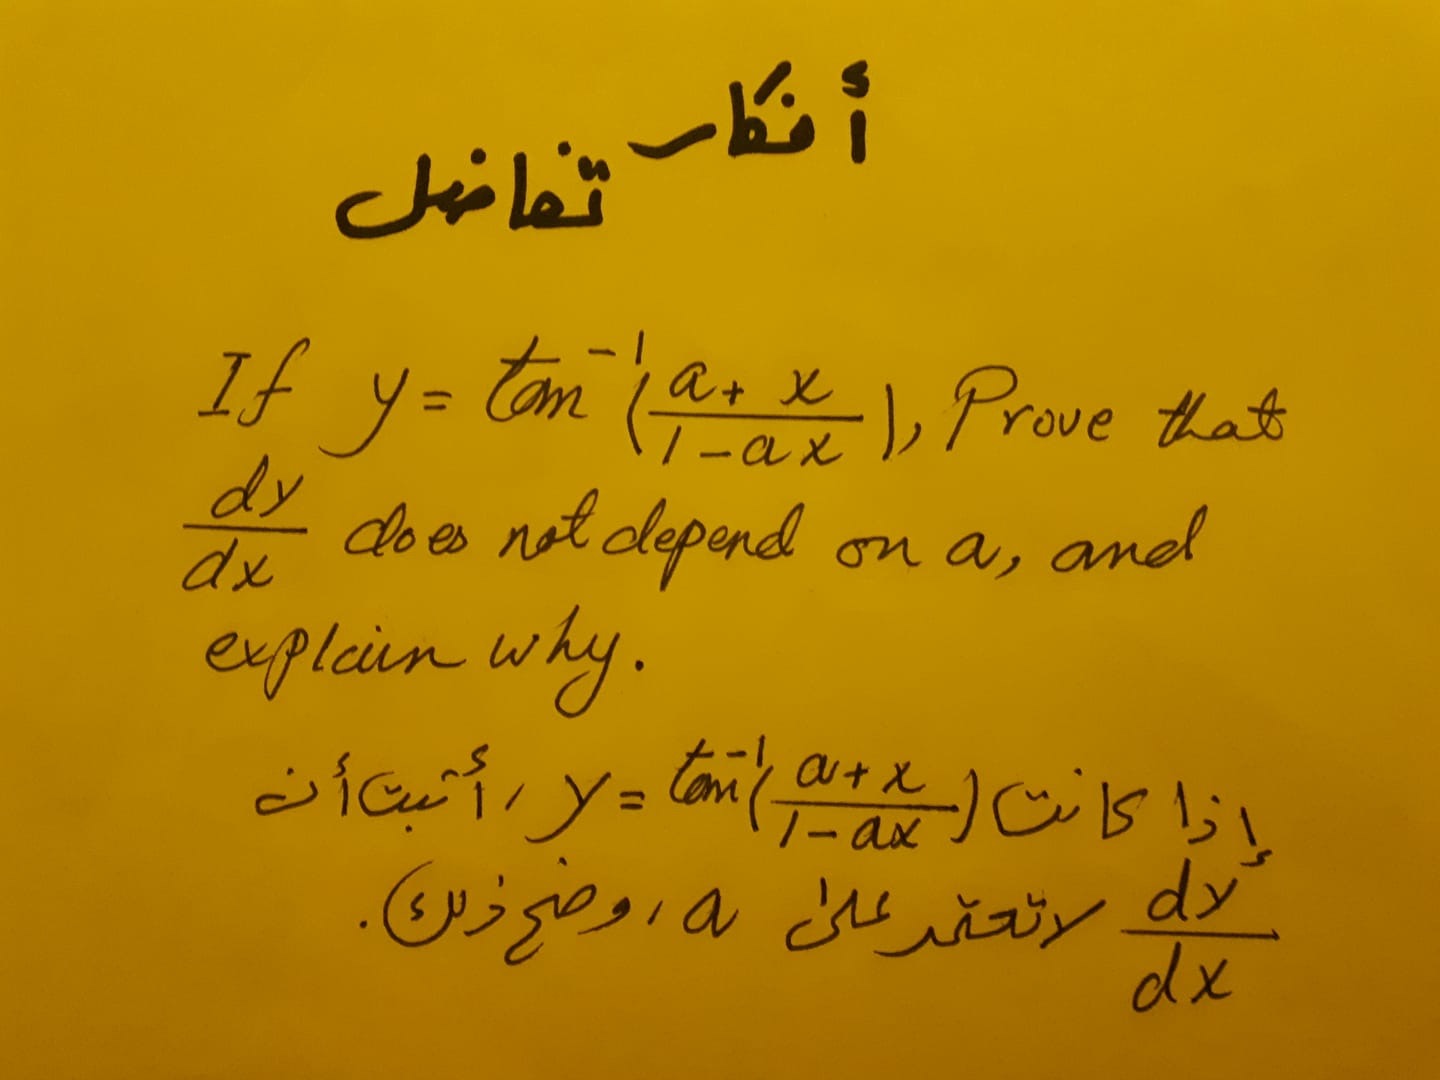 أفكار تفاضل
If y = tan⁻¹(a + x / 1 - ax), Prove that
dy/dx does not depend on a, and
explain why.
إذا كانت y = tan⁻¹(a + x / 1 - ax) ، أثبت أن
dy/dx لا تعتمد على a ، وضح ذلك.